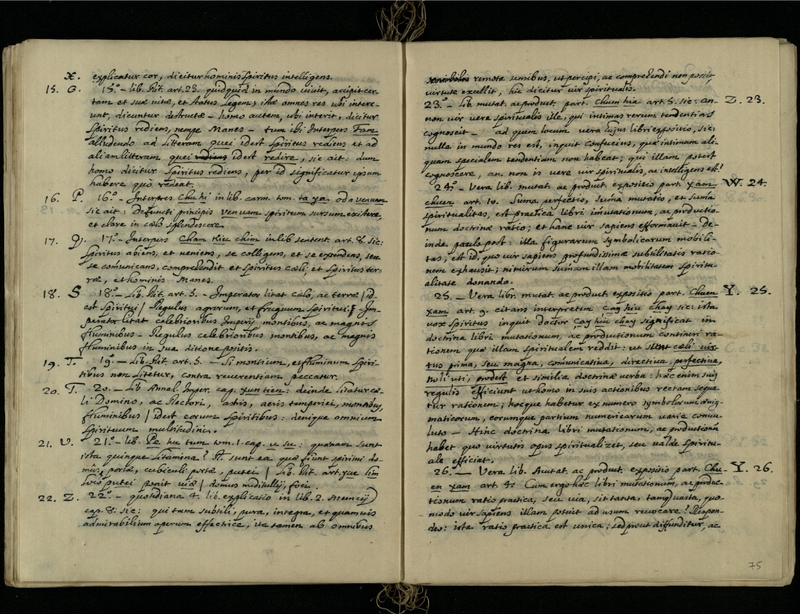 X. explicatur cor, dicitur hominis spiritus intelligens.
15. O. 15.º - Lib. Rit. art. 23. quidquid in mundo vivit, accipit cer-
tam et suæ vitæ, et status legem; itaq omnes res ubi intere-
unt, dicuntur destructæ - homo autem, ubi interit, dicitur
Spiritus rediens, nempe Manes - tum ibi Interpres
alludendo ad litteram quei idest Spiritus rediens et ad
aliam litteram quei idest redire, sic ait: dum
homo dicitur Spiritus rediens, per id significatur ipsum
habere quo redeat.
16. P. 16.º - Interpres Chu hi in lib. carm. tom. ta ya. oda venvam
sic ait: Defuncti principis Venvam spiritum sursum existere,
et clare in cælo splendescere.
17. 17.º - Interpres Cham kiu chim in lib. sentent. art. 8. sic:
Spiritus abiens, et veniens, se colligens, et se expandens, seu
se comunicans, comprehendit et Spiritus cæli, et Spiritus ter-
ræ, et hominis Manes.
18. S 18.º - Lib. Rit. art. 5. - Imperator litat cælo, ac terræ / id
est Spiritus / Regulus agrorum, et frugum Spiritui / Im-
perator litat celebrioribus Imperij montibus, ac magnis
fluminibus - Regulus celebrioribus montibus, ac magnis
fluminibus in sua ditione positis.
19. T. 19.º - Lib. Rit. art. 5. - Si montium, et fluminum Spiri-
tibus non litetur, contra reverentiam peccatur.
20. T. 20. - Lib. Annal. Imper. cap. xun tien: deinde litatur cæ-
li Domino, ac Rectori, astris, aeris temperiei, montibus,
fluminibus / idest eorum Spiritibus: denique omnium
Spirituum multitudini.
21. V. 21.º - lib. Pe hu tum tom. 1. cap. u su: quænam sunt
ista quinque Litamina? R. sunt ea quæ fiunt spirimi do-
mûs, portæ, cubiculi portæ, putei / Lib. Rit. art. yue lim
loco putei ponit viæ / domus meditullij, foci.
22. Z. 22.º - quotidiana 4. lib. explicatio in lib. 2. Memcij
cap. 8. sic: qui tam subtili, pura, integra, et quamvis
admirabilium operum effectrice, ita tamen ab omnibus
remota sensibus, ut percipi, ac comprehendi non possit
virtute excellit, hic dicitur vir spiritualis.
23.º Lib. mutat. ac product. part. Chuen hia art. 5. sic: an- Z. 23.
non vir vere spiritualis ille, qui intimas rerum tendentias
cognoscit - ad quem locum vera hujus libri expositio, sic:
nulla in mundo res est, inquit confucius, quæ intimam ali-
quam specialem tendentiam non habeat; qui illam potest
cognoscere, an non is vere vir spiritualis, ac intelligens est?
24.º - Vera lib. mutat. ac product. expositio part. xam W. 24.
chuen art. 10. Suma perfectio, suma mutatio, et suma
spiritualitas, est practica libri imutationum, ac productio-
num doctrinæ ratio; et hanc vir sapiens efformavit - De-
inde paulo post: illa figurarum symbolicarum mobili-
tas, est id, quo vir sapiens profundissimæ subtilitatis ratio-
nem exhausit; nimirum sumam illam mobilitatem Spiritu-
alitate donando.
25. - Vera libr. mutat. ac product. expositio part. Chuen Y. 25.
xam art. 9. citans interpretem Cag hiu chay sic: ista
vox Spiritus inquit doctor Cag hiu chay significat in
doctrina libri mutationum, ac productionum contineri ra-
tionem quæ illam spiritualem reddit: ut sunt cæli vir-
tus prima, seu magna, comunicativa, directiva, perfectiva,
noli uti, prodest et similia doctrinæ verba: hæc enim suis
regulis efficiunt ut homo in suis actionibus rectam sequa-
tur rationem; hocque habetur ex numero symbolorum ænig-
maticorum, eorumque partium numericarum varie convo-
luto - Hinc doctrina libri mutationum, ac productionum
habet quo virtutis opus spiritualizet, seu valde Spiritu-
ale efficiat.
26. - Vera lib. Mutat. ac product. expositio part. Chu- Y. 26.
en xam art. 9: Cum ergo hæc libri mutationum, ac produc-
tionum ratio practica, seu via, sit tanta, tamq vasta, quo-
modo vir sapiens illam potuit ad usum revocare? Respon-
deo: ista ratio practica est unica; sed prout diffunditur, ac
75